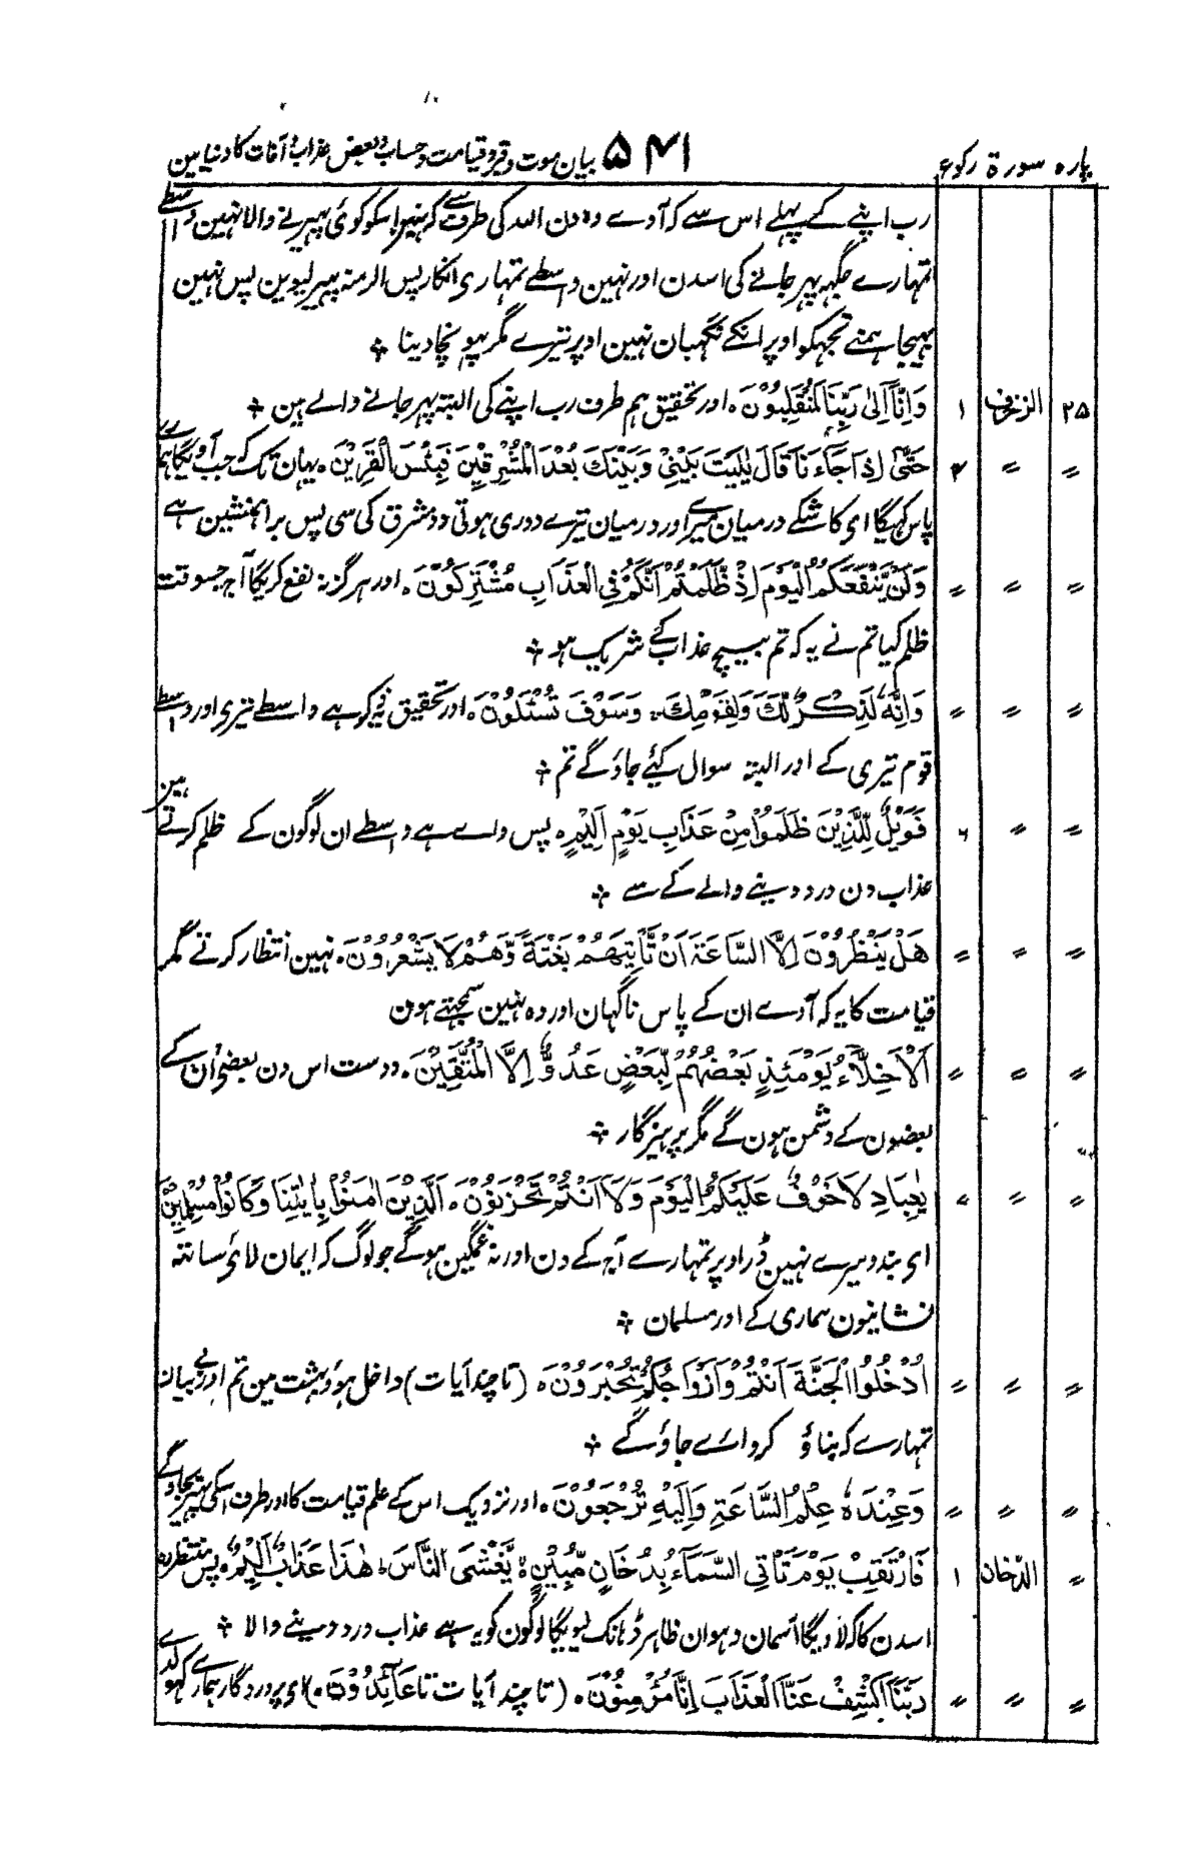 پارہ سورۃ رکوع ۵۴۱ بیان موت و قبر و قیامت و حساب و بعض عذاب و آفات کا دنیا مین
رب اپنے کے پہلے اس سے کہ آوے وہ دن اللہ کی طرف سے کہ نہین اسکو کوئی پھیرنے والا نہین واسطے
تمہارے جگہہ پھر جانے کی اسدن اور نہین واسطے تمہاری انکار پس اگر منہ پھیر لیوین پس نہین
بھیجا ہمنے تجھکو اوپر انکے نگہبان نہین اوپر تیرے مگر پہونچا دینا ❊
۲۵ الزخرف ۱ وَاِنَّآ اِلٰى رَبِّنَا لَمُنْقَلِبُوْنَ ۔ اور تحقیق ہم طرف رب اپنے کی البتہ پھر جانے والے ہین ❊
〃 〃 ۴ حَتّٰى اِذَا جَآءَنَا قَالَ يٰلَيْتَ بَيْنِيْ وَبَيْنَكَ بُعْدَ الْمَشْرِقَيْنِ فَبِئْسَ الْقَرِيْنُ ۔ یہان تک کہ جب آویگا ہمارے
پاس کہیگا ای کاشکے درمیان میرے اور درمیان تیرے دوری ہوتی دو مشرق کی سی پس برا ہمنشین ہے
〃 〃 〃 وَلَنْ يَّنْفَعَكُمُ الْيَوْمَ اِذْ ظَّلَمْتُمْ اَنَّكُمْ فِي الْعَذَابِ مُشْتَرِكُوْنَ ۔ اور ہرگز نہ نفع کریگا آج جسوقت
ظلم کیا تم نے یہ کہ تم بیچ عذاب کے شریک ہو ❊
〃 〃 〃 وَاِنَّهٗ لَذِكْرٌ لَّكَ وَلِقَوْمِكَ ۚ وَسَوْفَ تُسْئَلُوْنَ ۔ اور تحقیق ذکر ہے واسطے تیری اور واسطے
قوم تیری کے اور البتہ سوال کیئے جاؤ گے تم ❊
〃 〃 ۶ فَوَيْلٌ لِّلَّذِيْنَ ظَلَمُوْا مِنْ عَذَابِ يَوْمٍ اَلِيْمٍ ۔ پس واے ہے واسطے ان لوگون کے ظلم کرتے ہین
عذاب دن درد دینے والے کے سے ❊
〃 〃 〃 هَلْ يَنْظُرُوْنَ اِلَّا السَّاعَةَ اَنْ تَاْتِيَهُمْ بَغْتَةً وَّهُمْ لَا يَشْعُرُوْنَ ۔ نہین انتظار کرتے مگر
قیامت کا یہ کہ آوے ان کے پاس ناگہان اور وہ نہین سمجہتے ہون
〃 〃 〃 اَلْاَخِلَّآءُ يَوْمَئِذٍ بَعْضُهُمْ لِبَعْضٍ عَدُوٌّ اِلَّا الْمُتَّقِيْنَ ۔ دوست اس دن بعضے اُن کے
بعضون کے دشمن ہون گے مگر پرہیزگار ❊
〃 〃 〃 يٰعِبَادِ لَا خَوْفٌ عَلَيْكُمُ الْيَوْمَ وَلَآ اَنْتُمْ تَحْزَنُوْنَ ۔ اَلَّذِيْنَ اٰمَنُوْا بِاٰيٰتِنَا وَكَانُوْا مُسْلِمِيْنَ
ای بندو میرے نہین ڈر اوپر تمہارے آج کے دن اور نہ غمگین ہوگے جو لوگ کہ ایمان لائے ساتہ
نشانیون ہماری کے اور مسلمان ❊
〃 〃 〃 اُدْخُلُوا الْجَنَّةَ اَنْتُمْ وَاَزْوَاجُكُمْ تُحْبَرُوْنَ ۔ (تا چند آیات) داخل ہو بہشت مین تم اور بیبیان
تمہارے کہ بناؤ کروائے جاؤ گے ❊
〃 〃 〃 وَعِنْدَهٗ عِلْمُ السَّاعَةِ وَاِلَيْهِ تُرْجَعُوْنَ ۔ اور نزدیک اس کے علم قیامت کا اور طرف اسکی پھیرے جاؤگے
〃 الدّخان ۱ فَارْتَقِبْ يَوْمَ تَاْتِي السَّمَآءُ بِدُخَانٍ مُّبِيْنٍ ۙ يَّغْشَى النَّاسَ ۭ هٰذَا عَذَابٌ اَلِيْمٌ ۔ پس منتظر رہ
اسدن کا کہ لاویگا آسمان دہوان ظاہر ڈہانک لیویگا لوگون کو یہ ہے عذاب درد دینے والا ❊
〃 〃 〃 رَبَّنَا اكْشِفْ عَنَّا الْعَذَابَ اِنَّا مُؤْمِنُوْنَ ۔ (تا چند آیات تا عَآئِدُوْنَ ۔) ای پروردگار ہمارے کھولدے